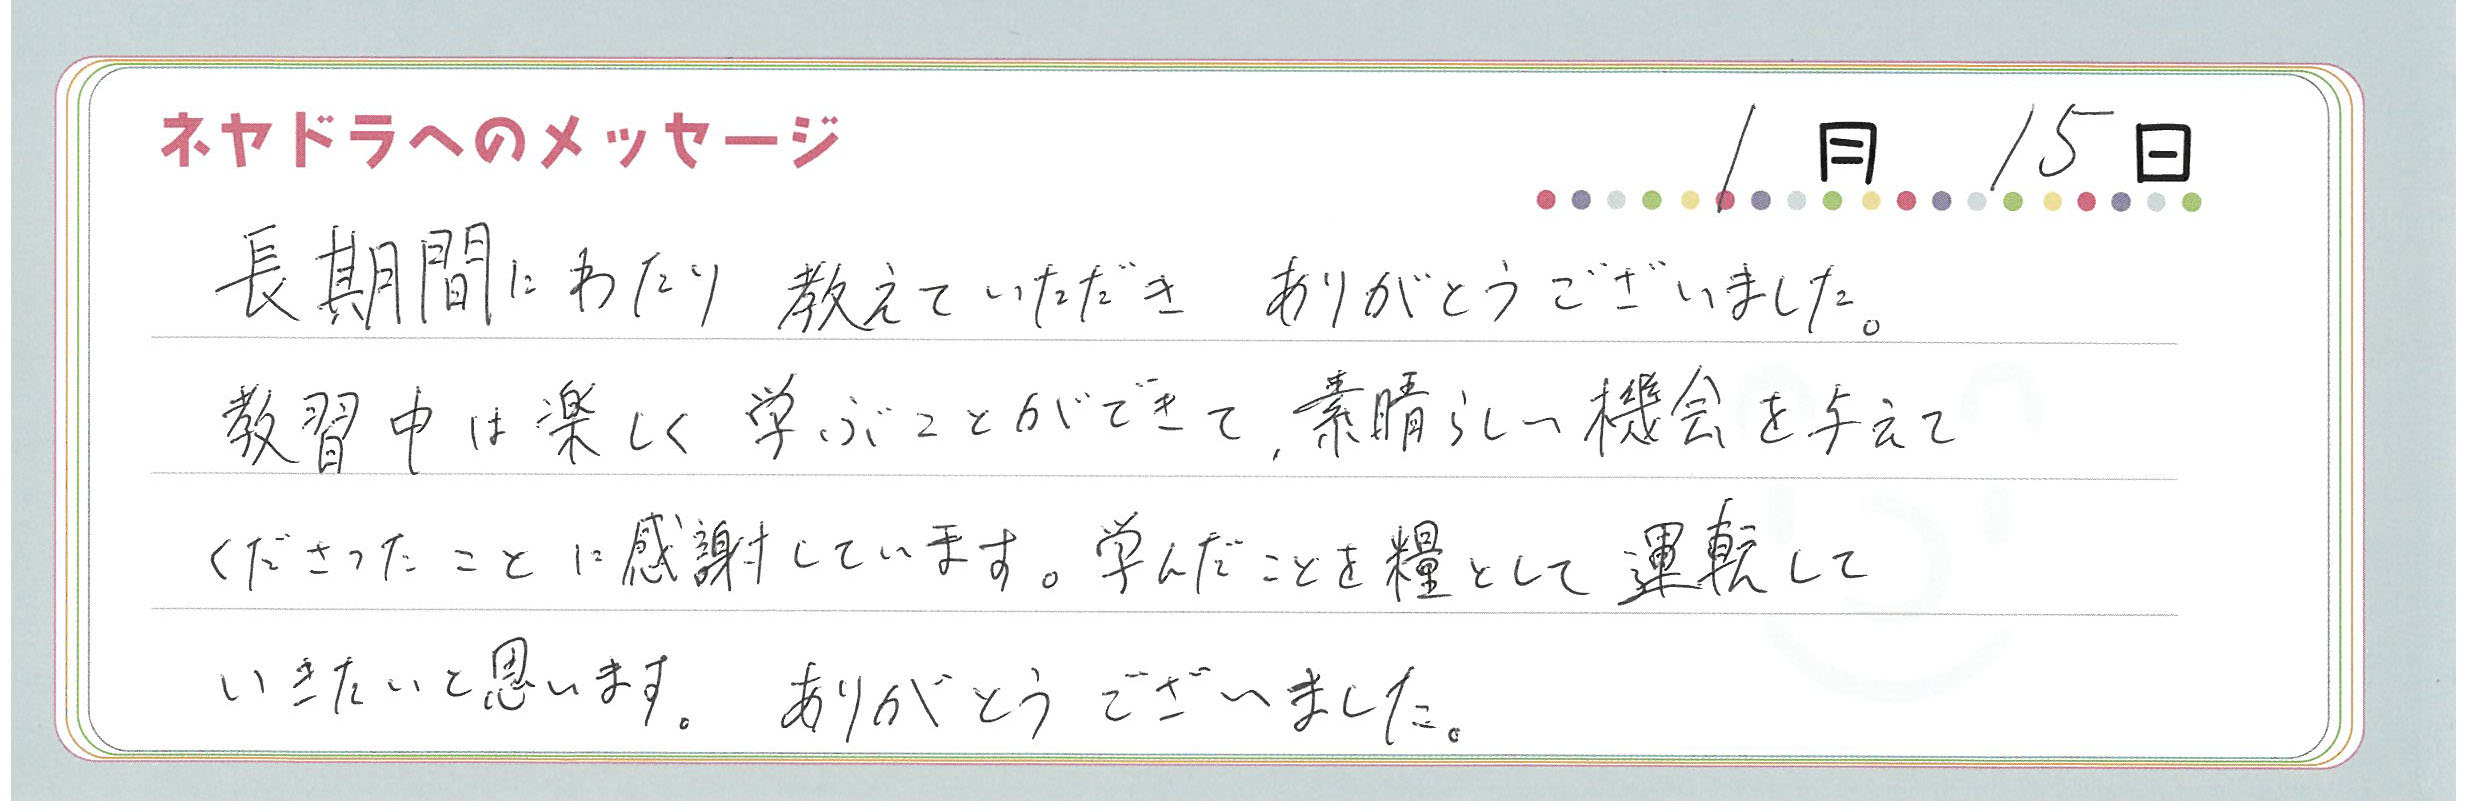 ネヤドラへのメッセージ
1月 15日
長期間にわたり 教えていただき ありがとうございました。
教習中は楽しく 学ぶことができて、素晴らしい機会を与えて
くださったことに感謝しています。学んだことを糧として運転して
いきたいと思います。 ありがとうございました。